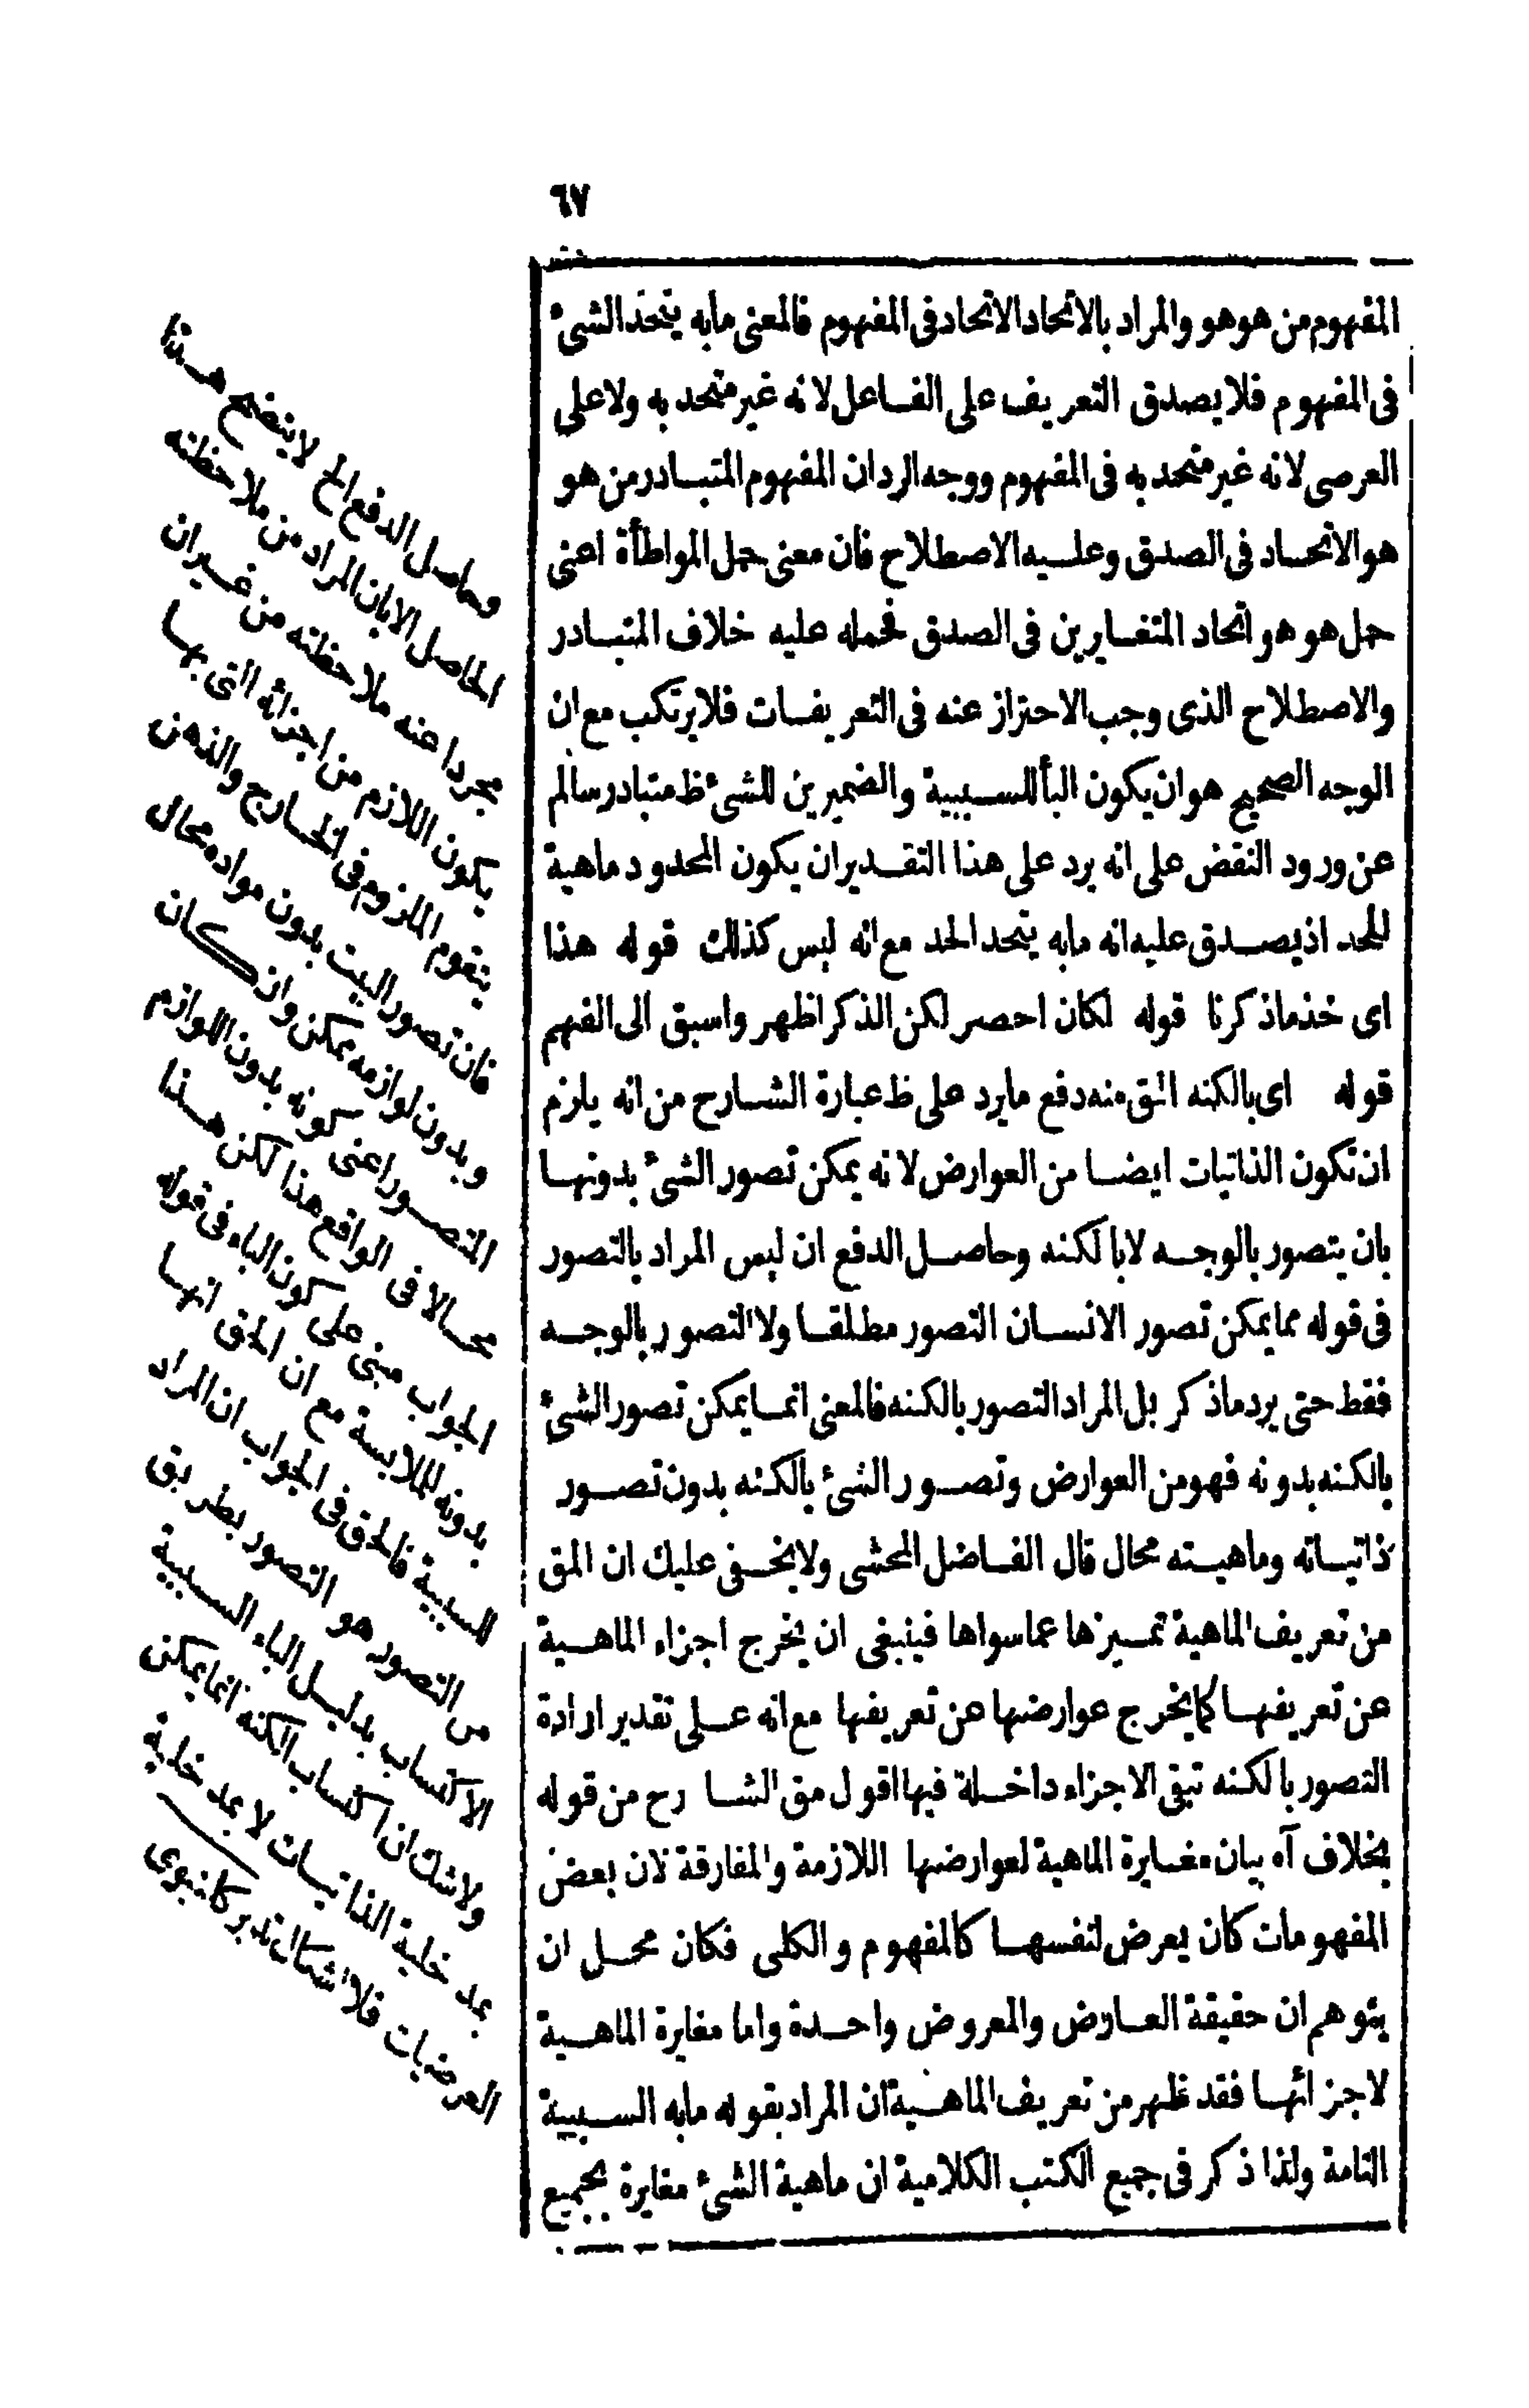 ٦٧
المفهوم من هو هو والمراد بالاتحاد الاتحاد فى المفهوم فالمعنى مابه يتحد الشئ
فى المفهوم فلا يصدق التعريف على الفاعل لانه غير متحد به ولا على
العرصى لانه غير متحد به فى المفهوم ووجه الرد ان المفهوم المتبادر من هو
هو الاتحاد فى الصدق وعليه الاصطلاح فان معنى حمل المواطأة اعنى
حمل هو هو اتحاد المتغايرين فى الصدق فحمله عليه خلاف المتبادر
والاصطلاح الذى وجب الاحتراز عنه فى التعريفات فلا يرتكب مع ان
الوجه الصحيح هو ان يكون البأ للسببية والضميرين للشئ ظ متبادر سالم
عن ورود النقض على انه يرد على هذا التقدير ان يكون المحدود ماهية
للحد اذ يصدق عليه انه مابه يتحد الحد مع انه ليس كذلك قوله هذا
اى خذ ماذكرنا قوله لكان احصر لكن الذكر اظهر واسبق الى الفهم
قوله اى بالكنه المق منه دفع مايرد على ظ عبارة الشارح من انه يلزم
ان تكون الذاتيات ايضا من العوارض لانه يمكن تصور الشئ بدونها
بان يتصور بالوجه لا بالكنه وحاصل الدفع ان ليس المراد بالتصور
فى قوله مما يمكن تصور الانسان التصور مطلقا ولا التصور بالوجه
فقط حتى يرد ماذكر بل المراد التصور بالكنه فالمعنى انما يمكن تصور الشئ
بالكنه بدونه فهو من العوارض وتصور الشئ بالكنه بدون تصور
ذاتياته وماهيته محال قال الفاضل المحشى ولا يخفى عليك ان المق
من تعريف الماهية تمييزها عما سواها فينبغى ان يخرج اجزاء الماهية
عن تعريفها كما يخرج عوارضها عن تعريفها مع انه على تقدير ارادة
التصور بالكنه تبقى الاجزاء داخلة فيها اقول مق الشارح من قوله
بخلاف آه بيان مغايرة الماهية لعوارضها اللازمة والمفارقة لان بعض
المفهومات كان يعرض لنفسها كالمفهوم والكلى فكان محل ان
يتوهم ان حقيقة العارض والمعروض واحدة واما مغايرة الماهية
لاجزائها فقد ظهر من تعريف الماهية ان المراد بقوله مابه السببية
التامة ولذا ذكر فى جميع الكتب الكلامية ان ماهية الشئ مغايرة لجميع
وحاصل الدفع الخ لا يتضح هذا
الحاصل الا بان المراد من ملاحظته
مجردا عنه ملاحظته من غير ان
يكون اللازم من اجزائه التى بها
يتقوم الملزوم فى الخارج والذهن
فان تصور البيت بدون مواده محال
وبدون لوازمه ممكن وان كان
التصور اعنى كونه بدون اللوازم
محالا فى الواقع هذا لكن هذا
الجواب مبنى على كون الباء فى قوله
بدونه للملابسة مع ان الحق انها
للسببية فالحق فى الجواب ان المراد
من التصور هو التصور بطريق
الاكتساب بدليل الباء السببية
ولاشك ان اكتساب الكنه انما يمكن
بمدخلية الذاتيات لا بمدخلية
العرضيات فلا اشكال تدبر كلنبوى